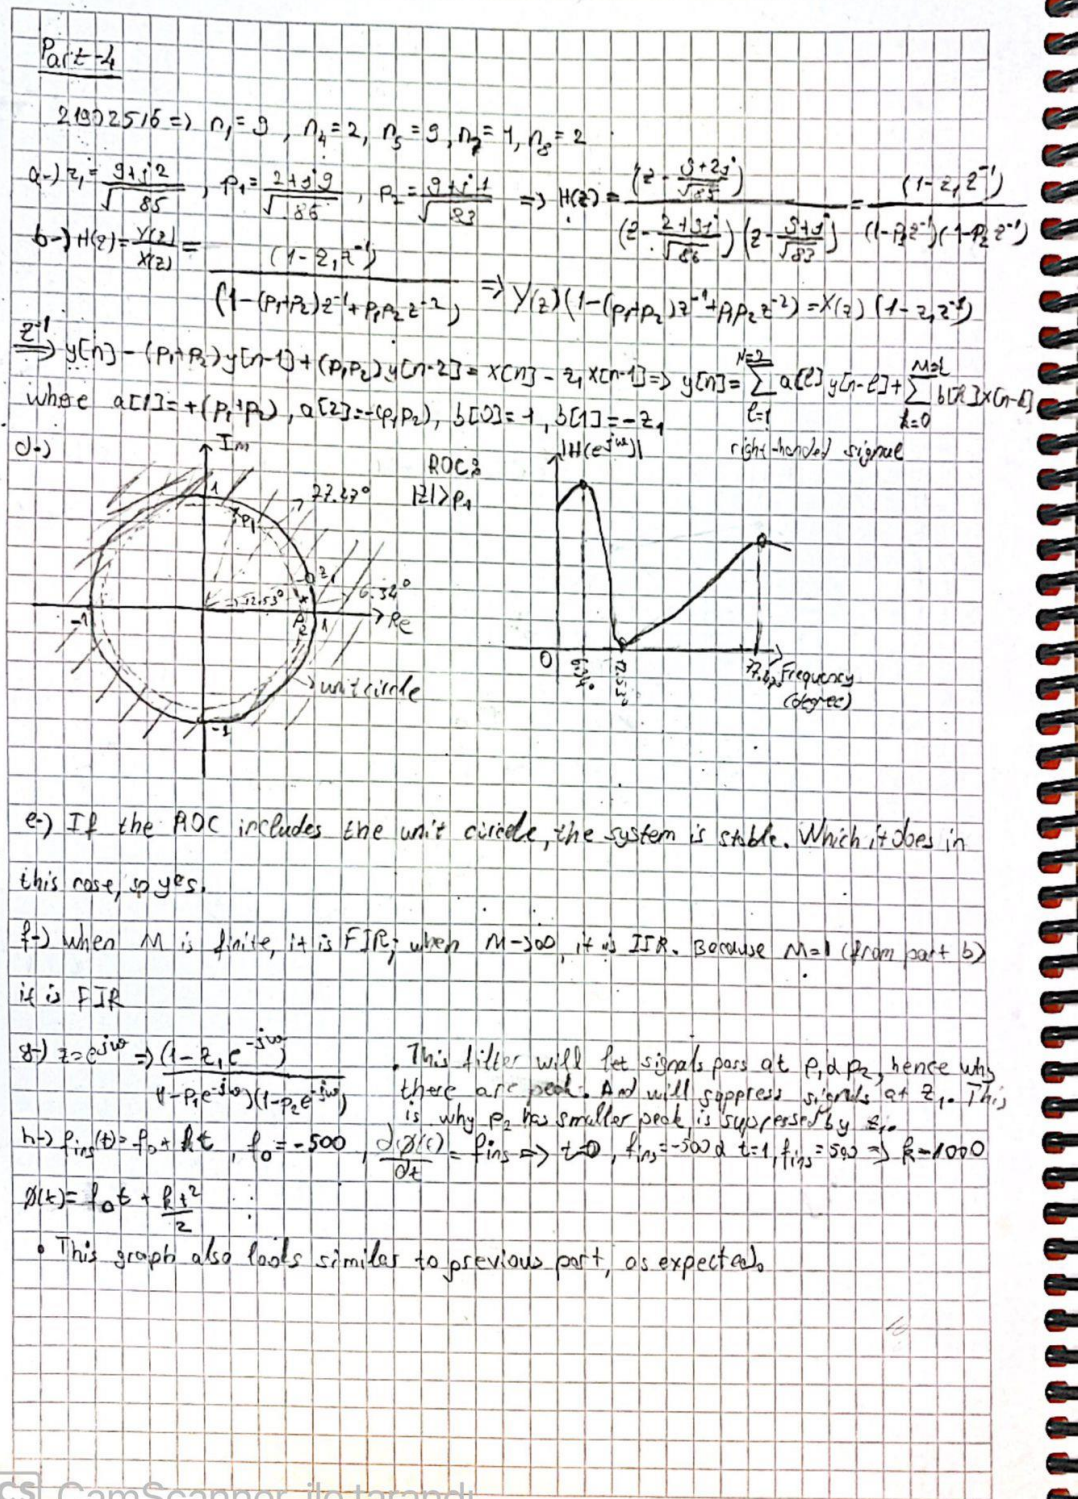 Part-4
21902516 => n₁=9, n₄=2, n₅=9, n₇=1, n₈=2
a-) z₁ = (9+j2)/√85, p₁ = (2+j9)/√86, p₂ = (9+j1)/√83 => H(z) = (z - (9+2j)/√85) / ((z - (2+9j)/√86)(z - (9+j)/√83)) = (1-z₁z⁻¹) / ((1-p₁z⁻¹)(1-p₂z⁻¹))
b-) H(z) = Y(z)/X(z) = (1-z₁z⁻¹) / (1-(p₁+p₂)z⁻¹+p₁p₂z⁻²) => Y(z)(1-(p₁+p₂)z⁻¹+p₁p₂z⁻²) = X(z)(1-z₁z⁻¹)
z⁻¹ => y[n]-(p₁+p₂)y[n-1]+(p₁p₂)y[n-2] = x[n]-z₁x[n-1] => y[n] = Σ_{l=1}^{N=2} a[l]y[n-l] + Σ_{k=0}^{M=1} b[k]x[n-k]
where a[1]=+(p₁+p₂), a[2]=-(p₁p₂), b[0]=1, b[1]=-z₁
right-handed signal
d-)
Im
ROC:
|z|>p₁
1
77.47°
p₁
z₁
6.34°
12.53°
p₂
-1
1
Re
unit circle
-1
|H(e^{jω})|
0
6.34°
12.53°
Frequency
(degree)
e-) If the ROC includes the unit circle, the system is stable. Which it does in
this case, so yes.
f-) when M is finite, it is FIR; when M->∞, it is IIR. Because M=1 (from part b)
it is FIR
g-) z=e^{jω} => (1-z₁e^{-jω}) / ((1-p₁e^{-jω})(1-p₂e^{-jω}))
. This filter will let signals pass at p₁ & p₂, hence why
there are peak. And will suppress signals at z₁. This
is why p₂ has smaller peak, is suppressed by z₁.
h-) f_ins(t)=f₀+kt, f₀=-500, dø(t)/dt = f_ins => t=0, f_ins=-500 & t=1, f_ins=500 => k=1000
ø(t) = f₀t + kt²/2
• This graph also looks similar to previous part, as expected.
CS CamScanner ile tarandı